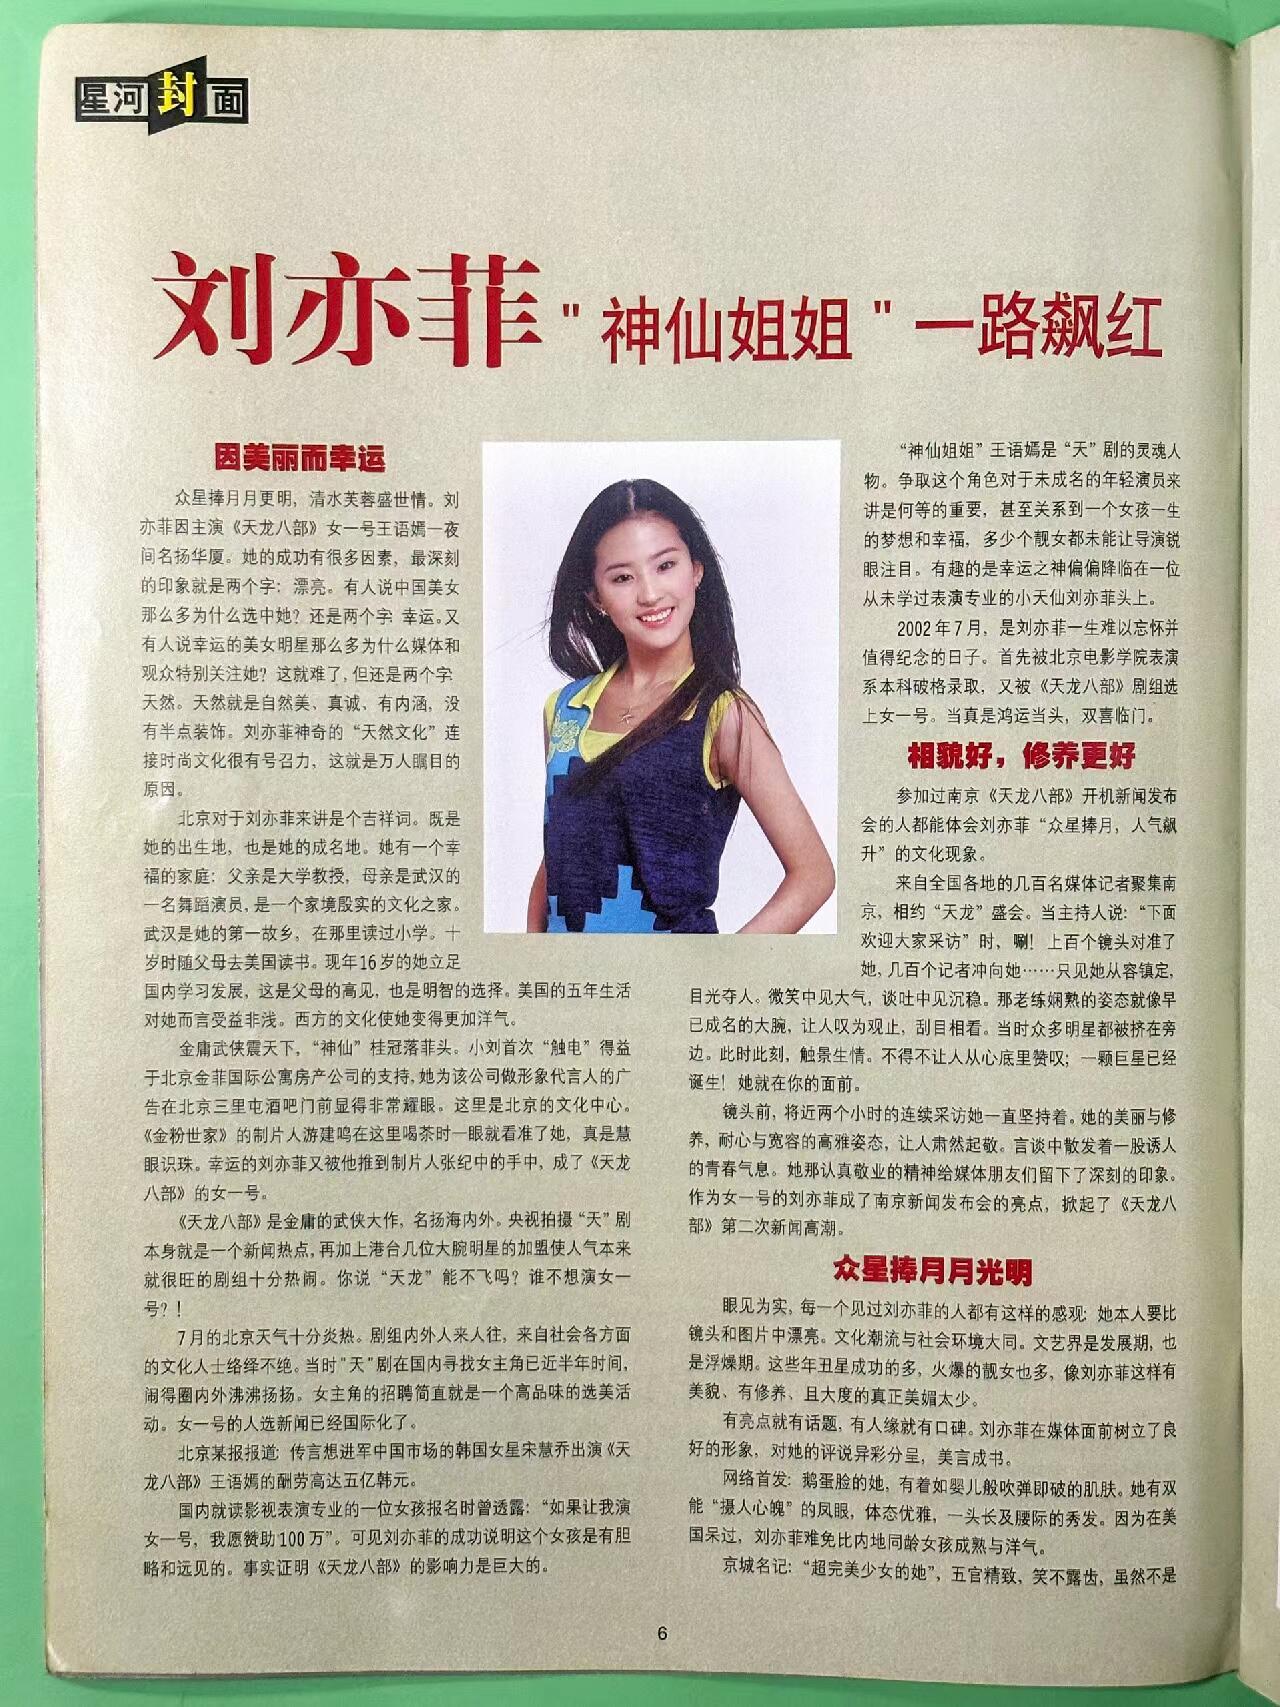 星河封面
刘亦菲"神仙姐姐"一路飙红
因美丽而幸运
众星捧月月更明，清水芙蓉盛世情。刘
亦菲因主演《天龙八部》女一号王语嫣一夜
间名扬华厦。她的成功有很多因素，最深刻
的印象就是两个字：漂亮。有人说中国美女
那么多为什么选中她？还是两个字 幸运。又
有人说幸运的美女明星那么多为什么媒体和
观众特别关注她？这就难了，但还是两个字
天然。天然就是自然美、真诚、有内涵，没
有半点装饰。刘亦菲神奇的“天然文化”连
接时尚文化很有号召力，这就是万人瞩目的
原因。
北京对于刘亦菲来讲是个吉祥词。既是
她的出生地，也是她的成名地。她有一个幸
福的家庭：父亲是大学教授，母亲是武汉的
一名舞蹈演员，是一个家境殷实的文化之家。
武汉是她的第一故乡，在那里读过小学。十
岁时随父母去美国读书。现年16岁的她立足
国内学习发展，这是父母的高见，也是明智的选择。美国的五年生活
对她而言受益非浅。西方的文化使她变得更加洋气。
金庸武侠震天下，“神仙”桂冠落菲头。小刘首次“触电”得益
于北京金菲国际公寓房产公司的支持，她为该公司做形象代言人的广
告在北京三里屯酒吧门前显得非常耀眼。这里是北京的文化中心。
《金粉世家》的制片人游建鸣在这里喝茶时一眼就看准了她，真是慧
眼识珠。幸运的刘亦菲又被他推到制片人张纪中的手中，成了《天龙
八部》的女一号。
《天龙八部》是金庸的武侠大作，名扬海内外。央视拍摄“天”剧
本身就是一个新闻热点，再加上港台几位大腕明星的加盟使人气本来
就很旺的剧组十分热闹。你说“天龙”能不飞吗？谁不想演女一
号？！
7月的北京天气十分炎热。剧组内外人来人往，来自社会各方面
的文化人士络绎不绝。当时"天"剧在国内寻找女主角已近半年时间，
闹得圈内外沸沸扬扬。女主角的招聘简直就是一个高品味的选美活
动。女一号的人选新闻已经国际化了。
北京某报报道：传言想进军中国市场的韩国女星宋慧乔出演《天
龙八部》王语嫣的酬劳高达五亿韩元。
国内就读影视表演专业的一位女孩报名时曾透露：“如果让我演
女一号，我愿赞助100万”。可见刘亦菲的成功说明这个女孩是有胆
略和远见的。事实证明《天龙八部》的影响力是巨大的。
“神仙姐姐”王语嫣是“天”剧的灵魂人
物。争取这个角色对于未成名的年轻演员来
讲是何等的重要，甚至关系到一个女孩一生
的梦想和幸福，多少个靓女都未能让导演锐
眼注目。有趣的是幸运之神偏偏降临在一位
从未学过表演专业的小天仙刘亦菲头上。
2002年7月，是刘亦菲一生难以忘怀并
值得纪念的日子。首先被北京电影学院表演
系本科破格录取，又被《天龙八部》剧组选
上女一号。当真是鸿运当头，双喜临门。
相貌好，修养更好
参加过南京《天龙八部》开机新闻发布
会的人都能体会刘亦菲“众星捧月，人气飙
升”的文化现象。
来自全国各地的几百名媒体记者聚集南
京，相约“天龙”盛会。当主持人说：“下面
欢迎大家采访”时，唰！上百个镜头对准了
她，几百个记者冲向她……只见她从容镇定，
目光夺人。微笑中见大气，谈吐中见沉稳。那老练娴熟的姿态就像早
已成名的大腕，让人叹为观止，刮目相看。当时众多明星都被挤在旁
边。此时此刻，触景生情。不得不让人从心底里赞叹；一颗巨星已经
诞生！她就在你的面前。
镜头前，将近两个小时的连续采访她一直坚持着。她的美丽与修
养，耐心与宽容的高雅姿态，让人肃然起敬。言谈中散发着一股诱人
的青春气息。她那认真敬业的精神给媒体朋友们留下了深刻的印象。
作为女一号的刘亦菲成了南京新闻发布会的亮点，掀起了《天龙八
部》第二次新闻高潮。
众星捧月月光明
眼见为实，每一个见过刘亦菲的人都有这样的感观：她本人要比
镜头和图片中漂亮。文化潮流与社会环境大同。文艺界是发展期，也
是浮燥期。这些年丑星成功的多，火爆的靓女也多，像刘亦菲这样有
美貌、有修养、且大度的真正美媚太少。
有亮点就有话题，有人缘就有口碑。刘亦菲在媒体面前树立了良
好的形象，对她的评说异彩分呈，美言成书。
网络首发：鹅蛋脸的她，有着如婴儿般吹弹即破的肌肤。她有双
能“摄人心魄”的凤眼，体态优雅，一头长及腰际的秀发。因为在美
国呆过，刘亦菲难免比内地同龄女孩成熟与洋气。
京城名记：“超完美少女的她”，五官精致，笑不露齿，虽然不是
6